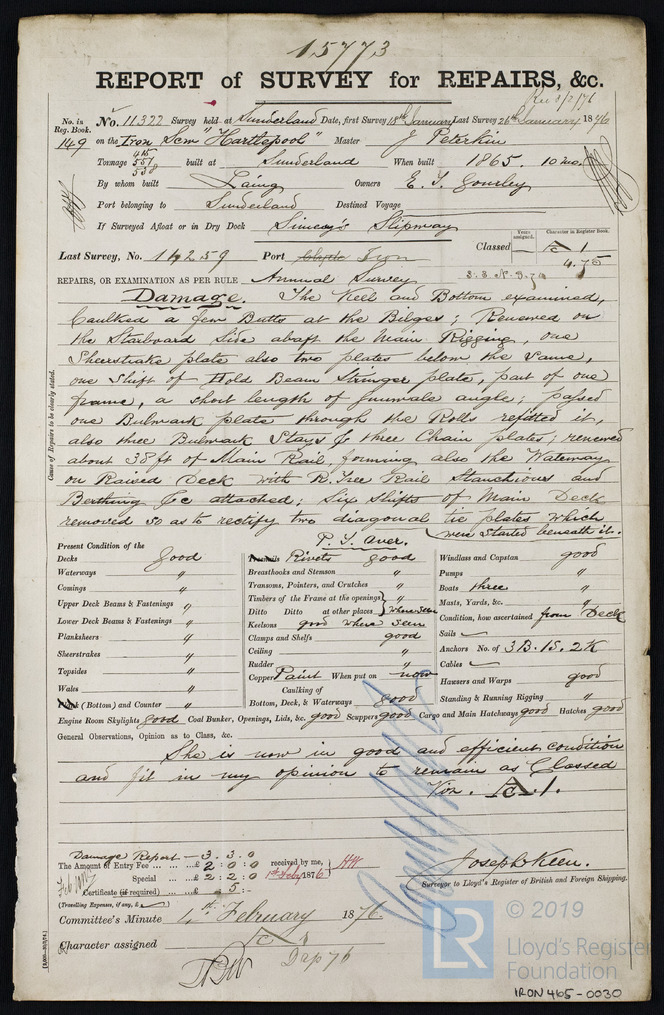 15773
REPORT of SURVEY for REPAIRS, &c.
Rec 3/2/76
No. in Reg. Book. No. 11322 Survey held at Sunderland Date, first Survey 18th January Last Survey 26th January 1876
149 on the Iron Scw "Hartlepool" Master J Peterkin
Tonnage 551 built at Sunderland When built 1865. 10 mo.
538
By whom built Laing Owners E. T. Gourley
Port belonging to Sunderland Destined Voyage
If Surveyed Afloat or in Dry Dock Slipway
Years assigned. Character in Register Book.
Last Survey, No. 14259 Port Iron Classed A 1
4.75
REPAIRS, OR EXAMINATION AS PER RULE Annual Survey
Cause of Repairs to be clearly stated.
Damage. The Keel and Bottom examined,
Caulked a few Butts at the Bilges; Renewed on
the Starboard Side abaft the Main Rigging, one
Sheerstrake plate also two plates below the same,
one shift of Hold Beam Stringer plate, part of one
frame, a short length of gunwale angle; passed
one Bulwark plate through the Rolls refitted it,
also three Bulwark Stays & three Chain plates; renewed
about 38 ft of Main Rail, forming also the Waterway
on Raised Deck with R. Tree Rail Stanchions and
Berthing &c attached; Six Shifts of Main Deck
removed so as to rectify two diagonal tie plates which
were started beneath it.
P. T. Over.
Present Condition of the
Decks good
Waterways "
Comings "
Upper Deck Beams & Fastenings "
Lower Deck Beams & Fastenings "
Planksheers "
Sheerstrakes "
Topsides "
Wales "
(Bottom) and Counter "
Treenails Rivets good
Breasthooks and Stemson "
Transoms, Pointers, and Crutches "
Timbers of the Frame at the openings "
Ditto Ditto at other places } where seen
Keelsons good where seen
Clamps and Shelfs good
Ceiling "
Rudder "
Copper Paint When put on now
Caulking of
Bottom, Deck, & Waterways good
Windlass and Capstan good
Pumps "
Boats three "
Masts, Yards, &c. "
Condition, how ascertained from Deck
Sails
Anchors No. of 3 B. 1 S. 2 K
Cables
Hausers and Warps good
Standing & Running Rigging "
Engine Room Skylights good Coal Bunker, Openings, Lids, &c. good Scuppers good Cargo and Main Hatchways good Hatches good
General Observations, Opinion as to Class, &c.
She is now in good and efficient condition
and fit in my opinion to remain as Classed
Viz. A 1.
Damage Report — 3. 3. 0
The Amount of Entry Fee £ 2 : 0 : 0 received by me,
Special £ 2 : 2 : 0 1st Feby 1876
Certificate (if required) £ - 5 : -
(Travelling Expenses, if any, £
Joseph Keen.
Surveyor to Lloyd's Register of British and Foreign Shipping.
Committee's Minute 4th February 1876.
Character assigned A 1
© 2019
LR
Lloyd's Register
Foundation
IRON 465-0030